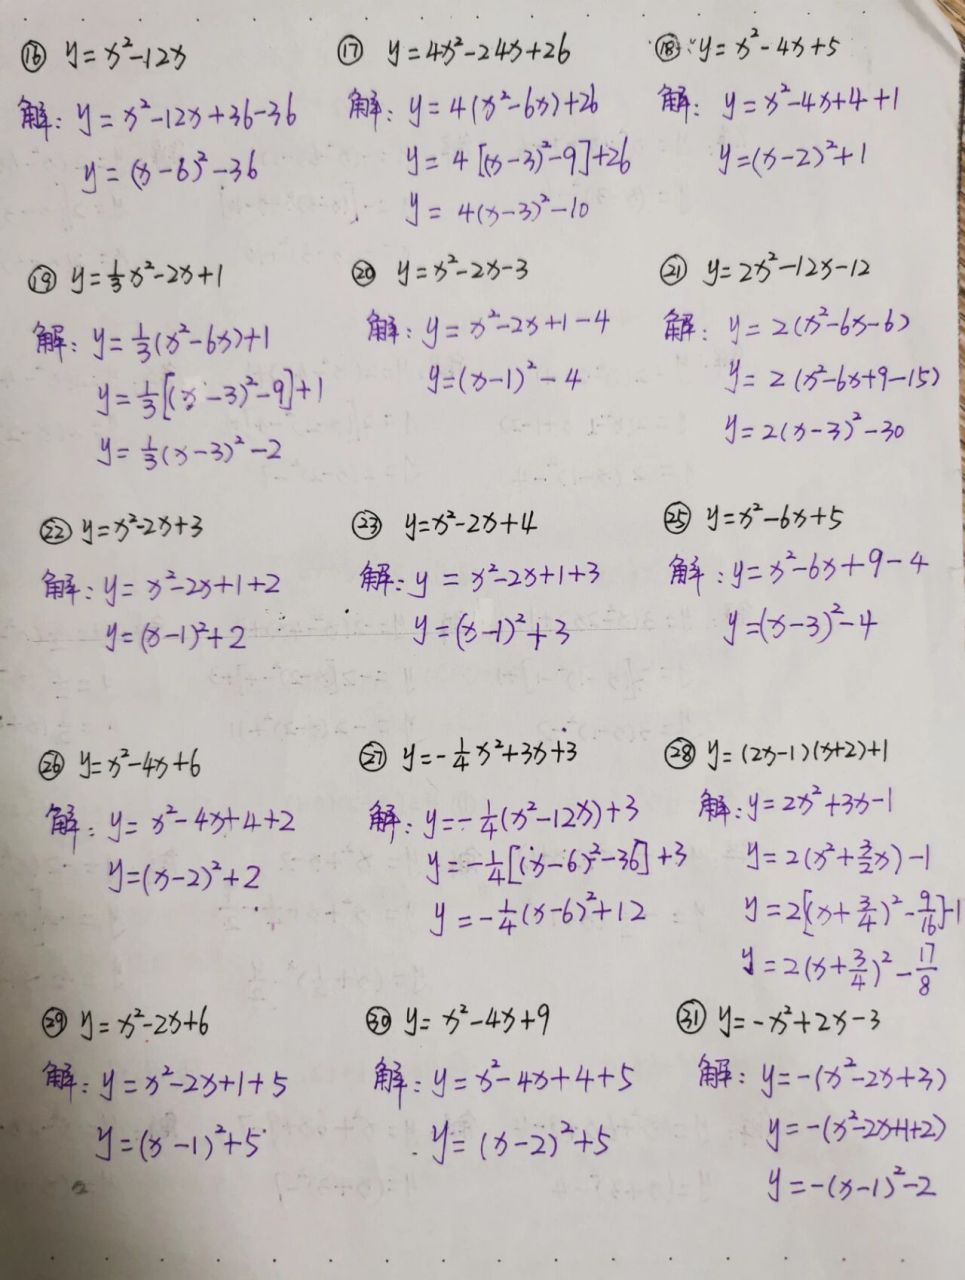 ⑯ y=x²-12x
解: y=x²-12x+36-36
y=(x-6)²-36
⑰ y=4x²-24x+26
解: y=4(x²-6x)+26
y=4[(x-3)²-9]+26
y=4(x-3)²-10
⑱ y=x²-4x+5
解: y=x²-4x+4+1
y=(x-2)²+1
⑲ y=⅓x²-2x+1
解: y=⅓(x²-6x)+1
y=⅓[(x-3)²-9]+1
y=⅓(x-3)²-2
⑳ y=x²-2x-3
解: y=x²-2x+1-4
y=(x-1)²-4
㉑ y=2x²-12x-12
解: y=2(x²-6x-6)
y=2(x²-6x+9-15)
y=2(x-3)²-30
㉒ y=x²-2x+3
解: y=x²-2x+1+2
y=(x-1)²+2
㉓ y=x²-2x+4
解: y=x²-2x+1+3
y=(x-1)²+3
㉕ y=x²-6x+5
解: y=x²-6x+9-4
y=(x-3)²-4
㉖ y=x²-4x+6
解: y=x²-4x+4+2
y=(x-2)²+2
㉗ y=-¼x²+3x+3
解: y=-¼(x²-12x)+3
y=-¼[(x-6)²-36]+3
y=-¼(x-6)²+12
㉘ y=(2x-1)(x+2)+1
解: y=2x²+3x-1
y=2(x²+3/2x)-1
y=2[(x+3/4)²-9/16]-1
y=2(x+3/4)²-17/8
㉙ y=x²-2x+6
解: y=x²-2x+1+5
y=(x-1)²+5
㉚ y=x²-4x+9
解: y=x²-4x+4+5
y=(x-2)²+5
㉛ y=-x²+2x-3
解: y=-(x²-2x+3)
y=-(x²-2x+1+2)
y=-(x-1)²-2